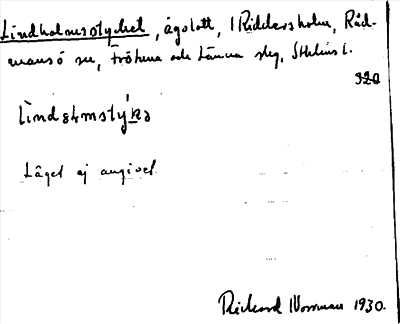 Lindholmsstycket, ägolott, 1 Riddersholm, Råd-
mansö sn, Frötuna och Länna slg, Sthlms l.
320
Läget ej angivet
Rickard Norrman 1930.